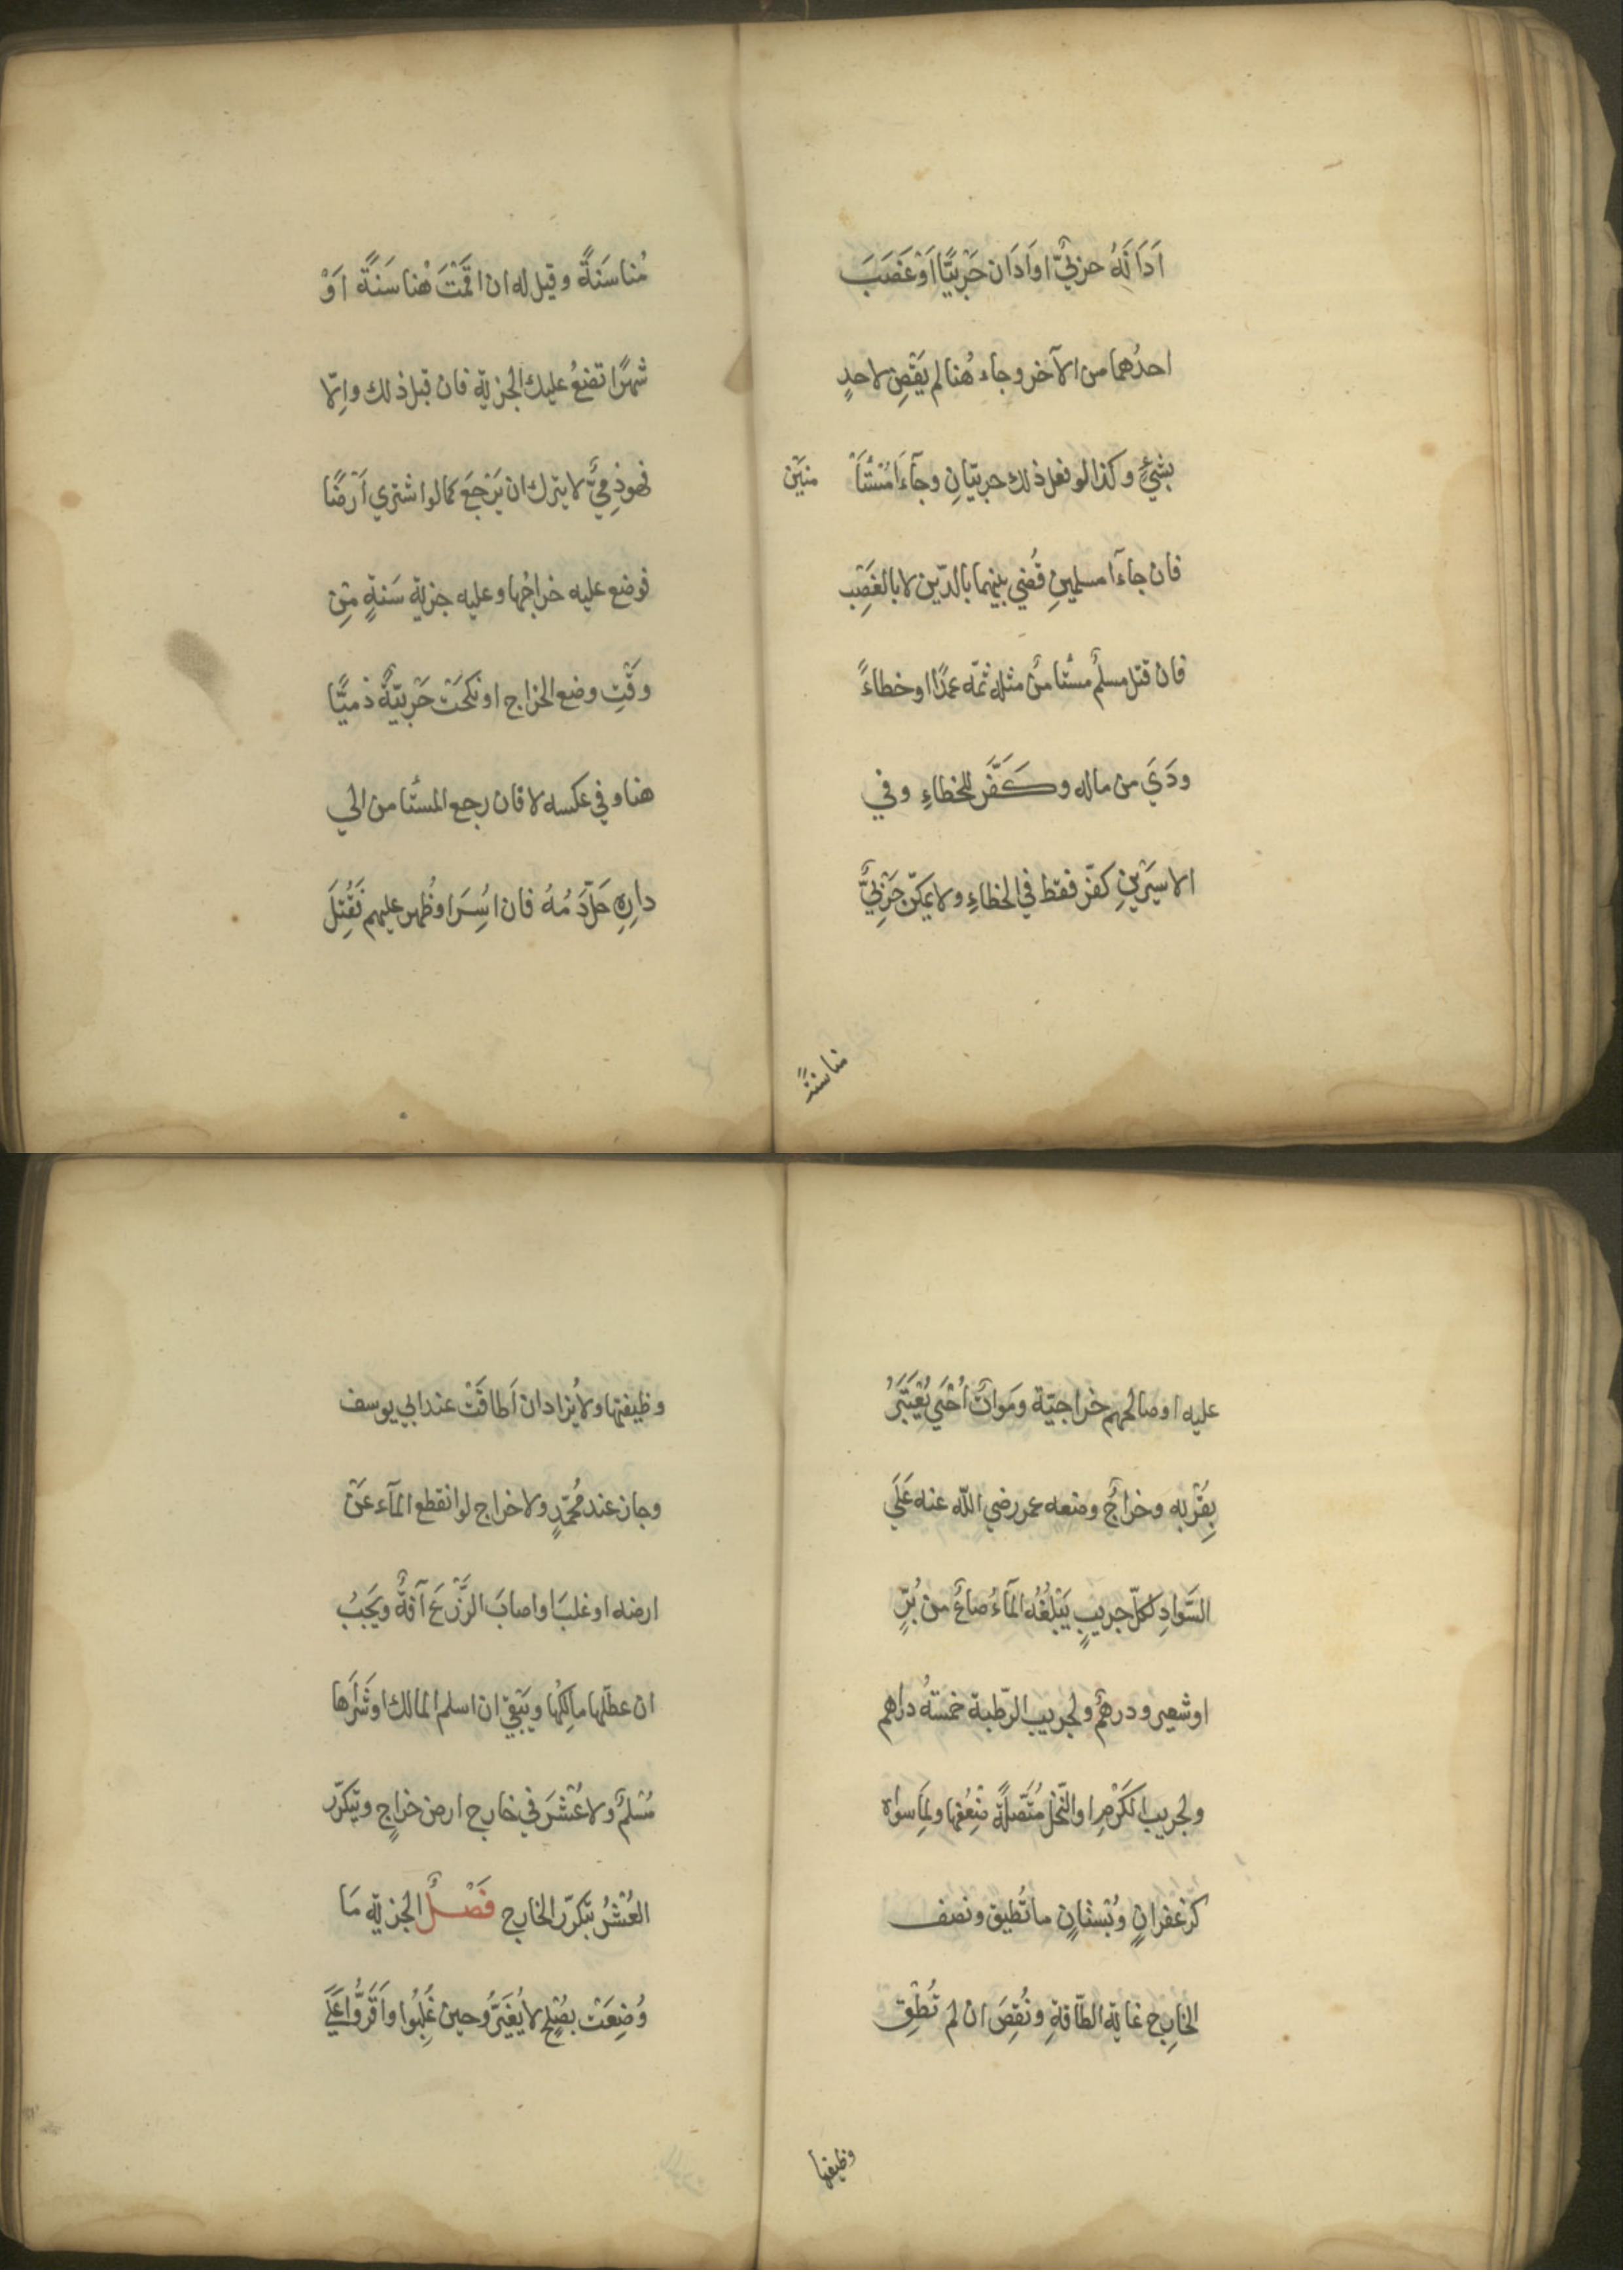 اَدَانَهُ حربيٌّ اواَدَان حَرْبِيًّا اَوْغَصَبَ
احدُهما من الآخر وجاء هُنا لم يَقْضِ لاحدٍ
بشيءٍ وكذا لو فعل ذلك حربيّانِ وجآءَا مُسْتَأْ منَيْن
فان جاءآ مسلمينِ قُضي بينهما بالدّين لا بالغَصْبِ
فان قتل مسلمٌ مستأمنٌ مثله ثمّه عمدًا اوخطاءً
ودَيَ من ماله وكَفَّرَ للخطاءِ وفي
الاسيرَيْنِ كفّر فقط في الخطاءِ ولا يمكّن حَرْبيٌّ
هُنا سنةً
هُنا سَنَةً وقيل له ان اقمْتَ هُنا سَنَةً اَوْ
شهرًا تضعُ عليك الجزية فان قبل ذلك واِلّا
فهو ذِمّيٌّ لا يترك ان يَرْجِعَ كما لو اشتري اَرْضًا
فوضع عليه خراجُها وعليه جزية سَنةٍ مِنْ
وقْتِ وضع الخراج او نكَحَتْ حَرْبِيّةٌ ذميًّا
هنا وفي عكسه لا فان رجع المستأمن الي
دارِهِ حَلَّ دَمُهُ فان اُسِرَ اوظُهر عليهم فَقُتِلَ
عليه اوصالحهم خراجيّة ومَواتٌ اُحْيَي يُعْتَبَرُ
بِقُرْبه وخراجٌ وضعه عمر رضي اللّه عنه عَلَي
السَّوادِ لكلّ جريبٍ يَبْلُغُه المآءُ صاعٌ من بُرٍّ
اوشعير ودرهمٌ ولجريب الرّطبة خمسةُ دراهم
ولجريب الكَرْمِ والنّخل مُتَّصلةً ضِعْفُها ولِمَا سواه
كزعفرانٍ وبُسْتانٍ ما تُطيق ونصف
الخارِج غاية الطّاقةِ ونُقِصَ ان لم تُطِقْ
وظيفتها
وظيفتها ولا يُزاد ان اَطاقَتْ عند ابي يوسف
وجاز عند مُحمّدٍ ولا خراج لو انقطع المآء عَنْ
ارضه اوغلبَ اواصابَ الزَّرْعَ آفةٌ ويَجبُ
ان عطّلها مالِكُها ويَبْقيٰ ان اسلم المالك اوشَرَاها
مُسْلمٌ ولا عُشْرَ في خارج ارض خراجٍ ويتكرّر
العُشْرُ بتكرّر الخارج فَصْلٌ الجزية مَا
وُضِعَتْ بصُلْحٍ لا يُغيَّرُ وحين غُلِبُوا واُقَرُّوا عَلَي